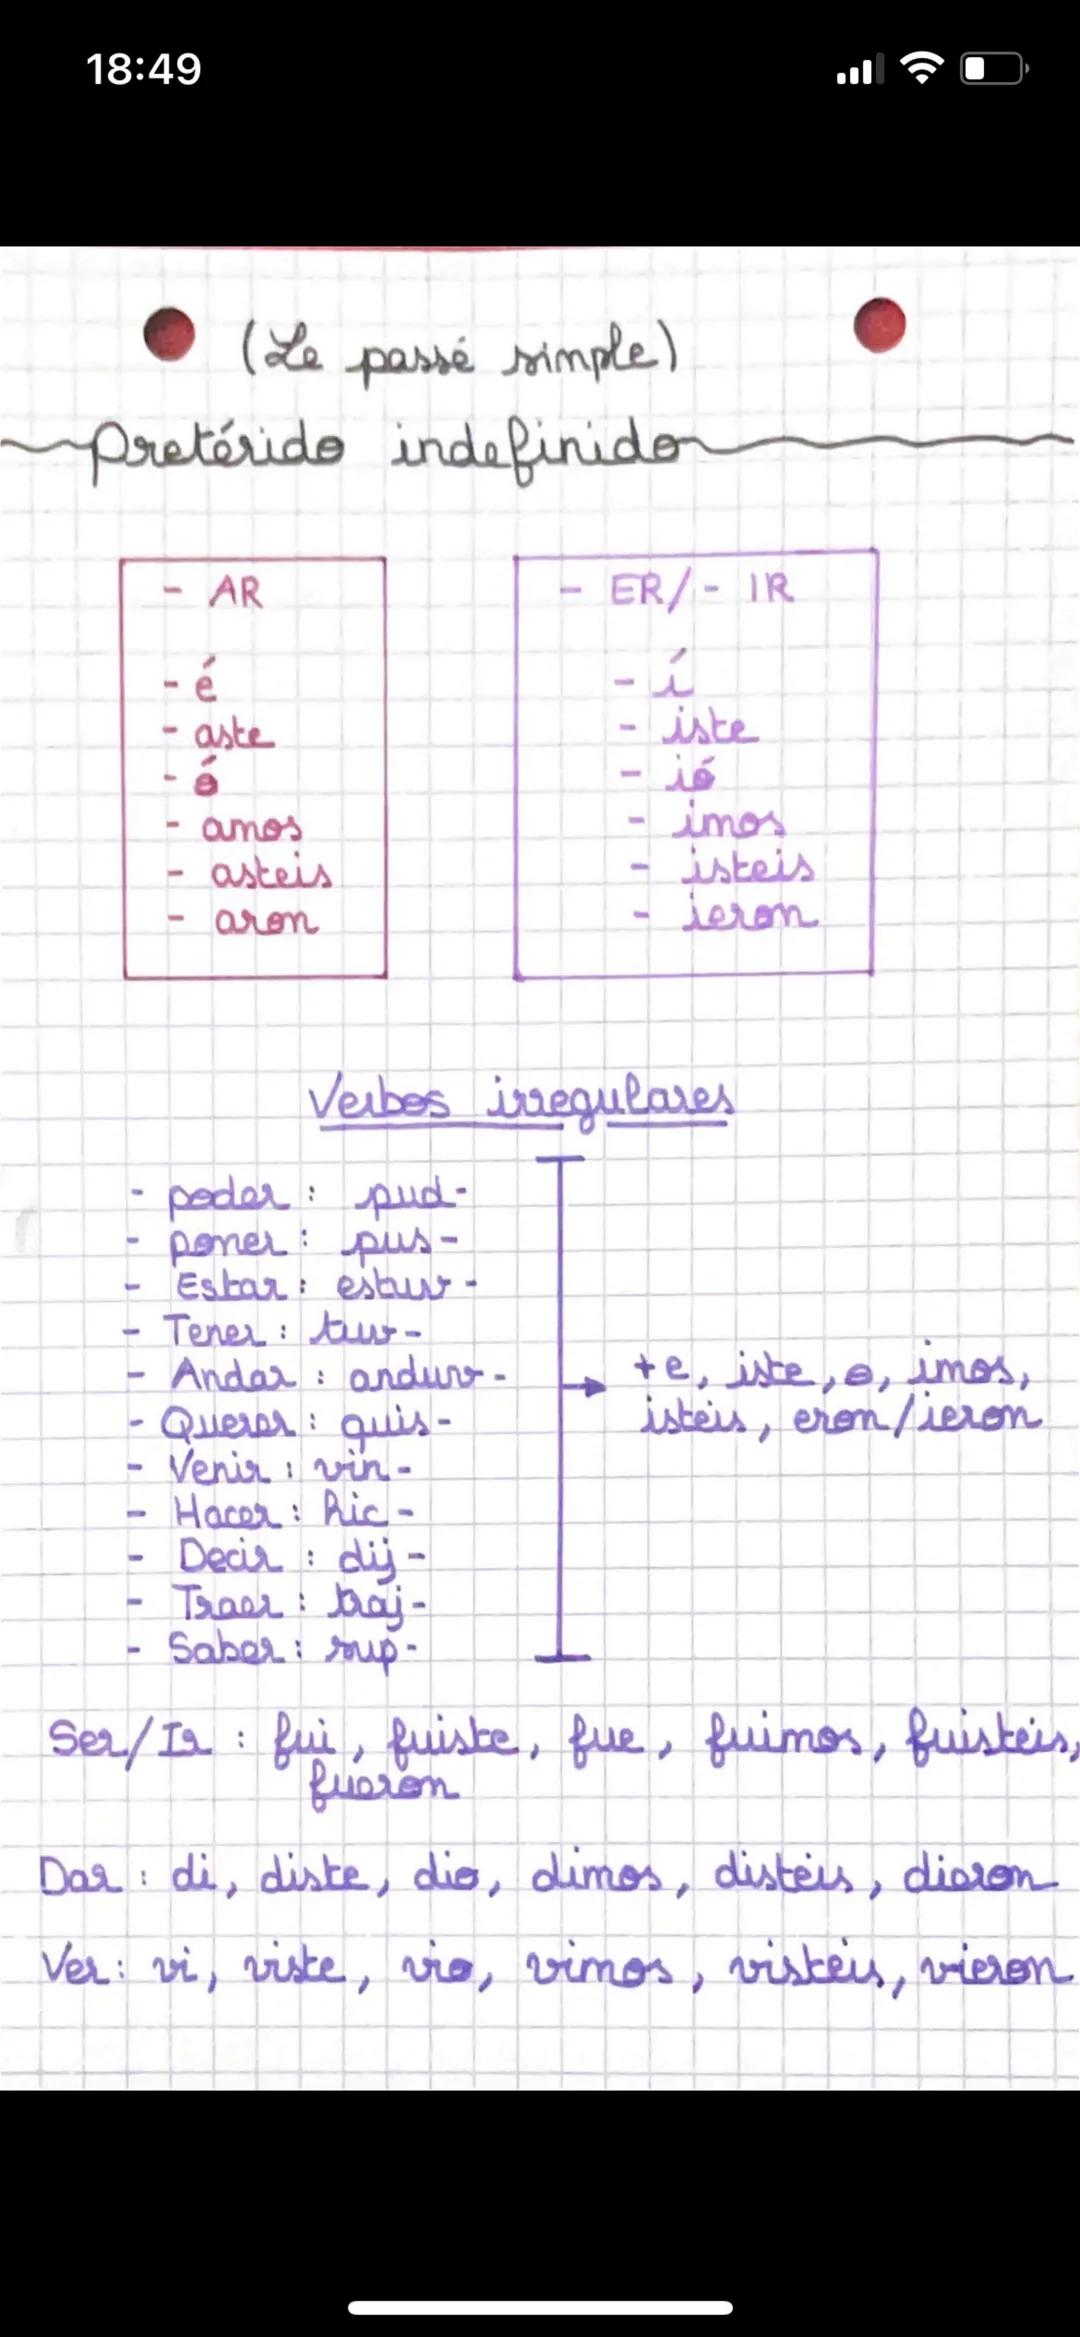 18:49
(Le passé simple)
Pretérido indefinido
- AR
- é
- aste
- ó
- amos
- asteis
- aron
- ER/- IR
- í
- iste
- ió
- imos
- isteis
- ieron
Verbos irregulares
- poder : pud-
- poner : pus-
- Estar : estuv-
- Tener : tuv-
- Andar : anduv-
- Querer : quis-
- Venir : vin-
- Hacer : hic-
- Decir : dij-
- Traer : traj-
- Saber : sup-
+e, iste, o, imos,
isteis, eron/ieron
Ser/Ir : fui, fuiste, fue, fuimos, fuisteis,
fueron
Dar : di, diste, dio, dimos, disteis, dieron
Ver : vi, viste, vio, vimos, visteis, vieron